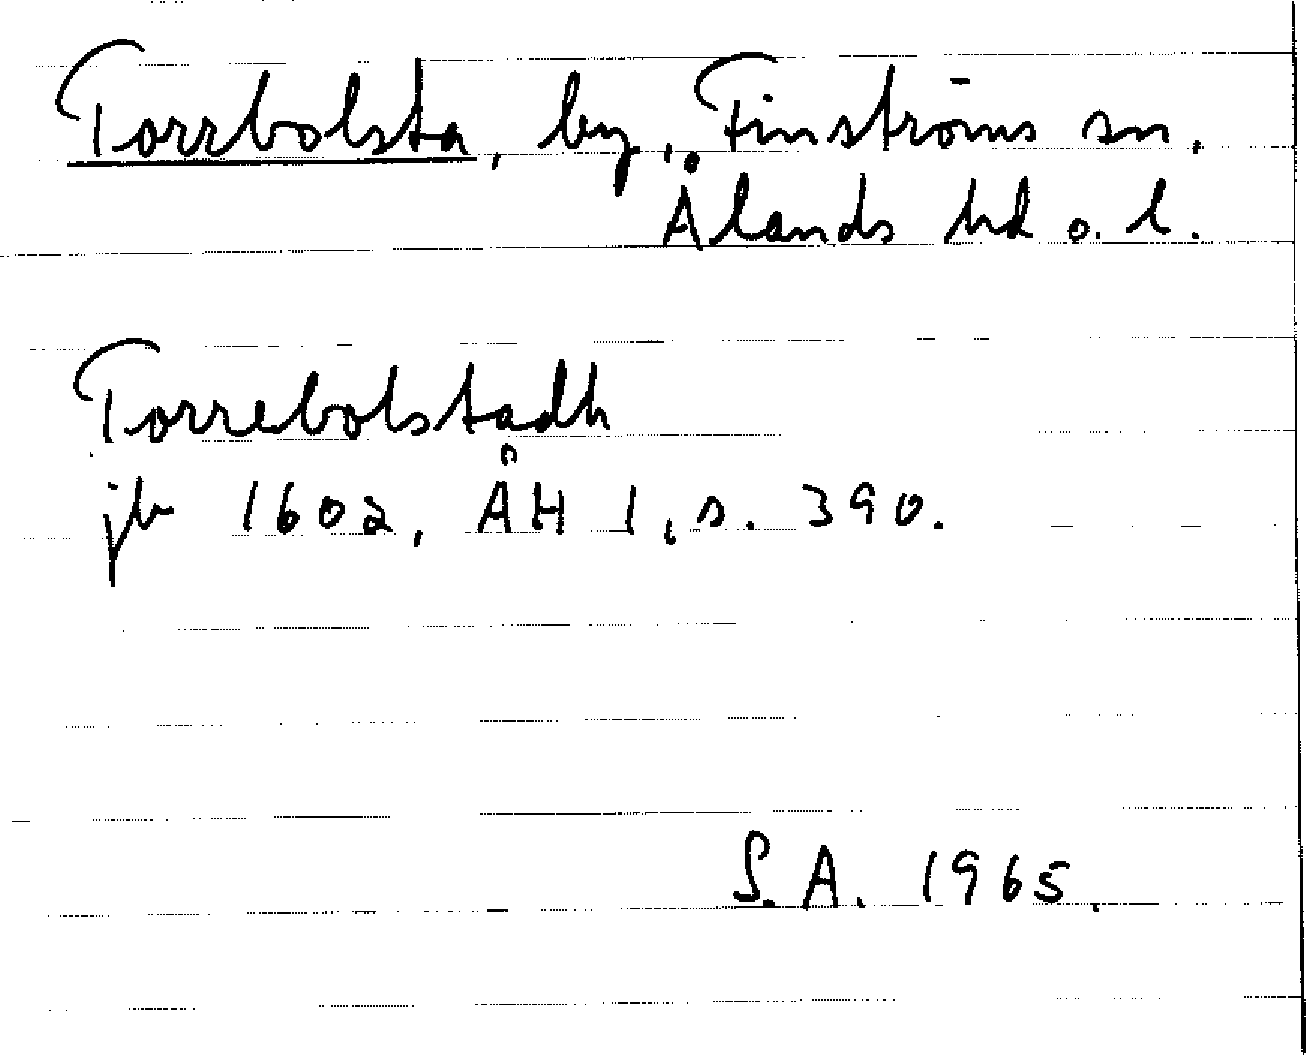 Torrbolsta, by, Finströms sn.
Ålands hd o. l.
Torrebolstadh
jb 1602, ÅH 1, s. 390.
S. A. 1965.